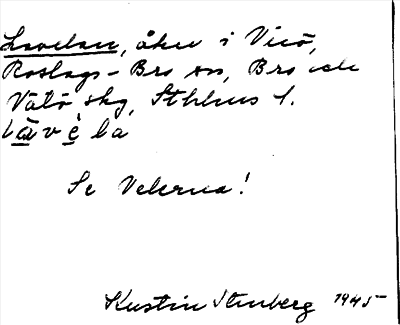 Lavelan, åker i Vicö,
Roslags-Bro sn, Bro och
Vätö skg, Sthlms l.
lavèla
Se Velerna!
Kustin Stenberg 1945